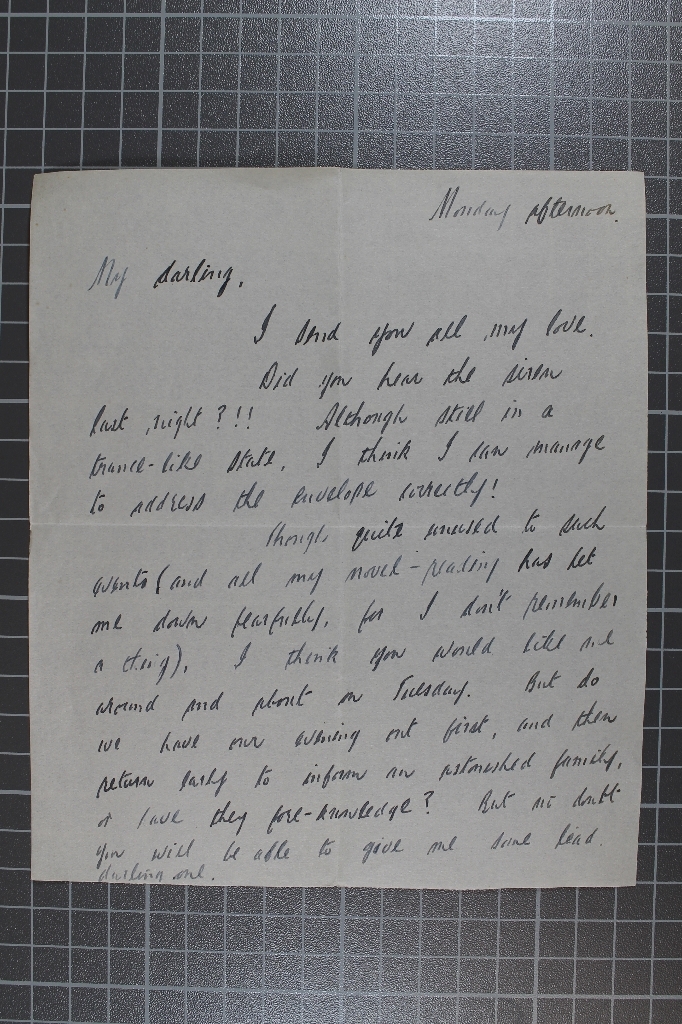 Monday afternoon.
My darling,
I send you all my love.
Did you hear the siren
last night?!! Although still in a
trance-like state, I think I can manage
to address the envelope correctly!
Though quite unused to such
events (and all my novel-reading has let
me down fearfully, for I don't remember
a thing), I think you would like me
around and about on Tuesday. But do
we have our evening out first, and then
return early to inform an astonished family,
or have they fore-knowledge? But no doubt
you will be able to give me some lead.
darling one.